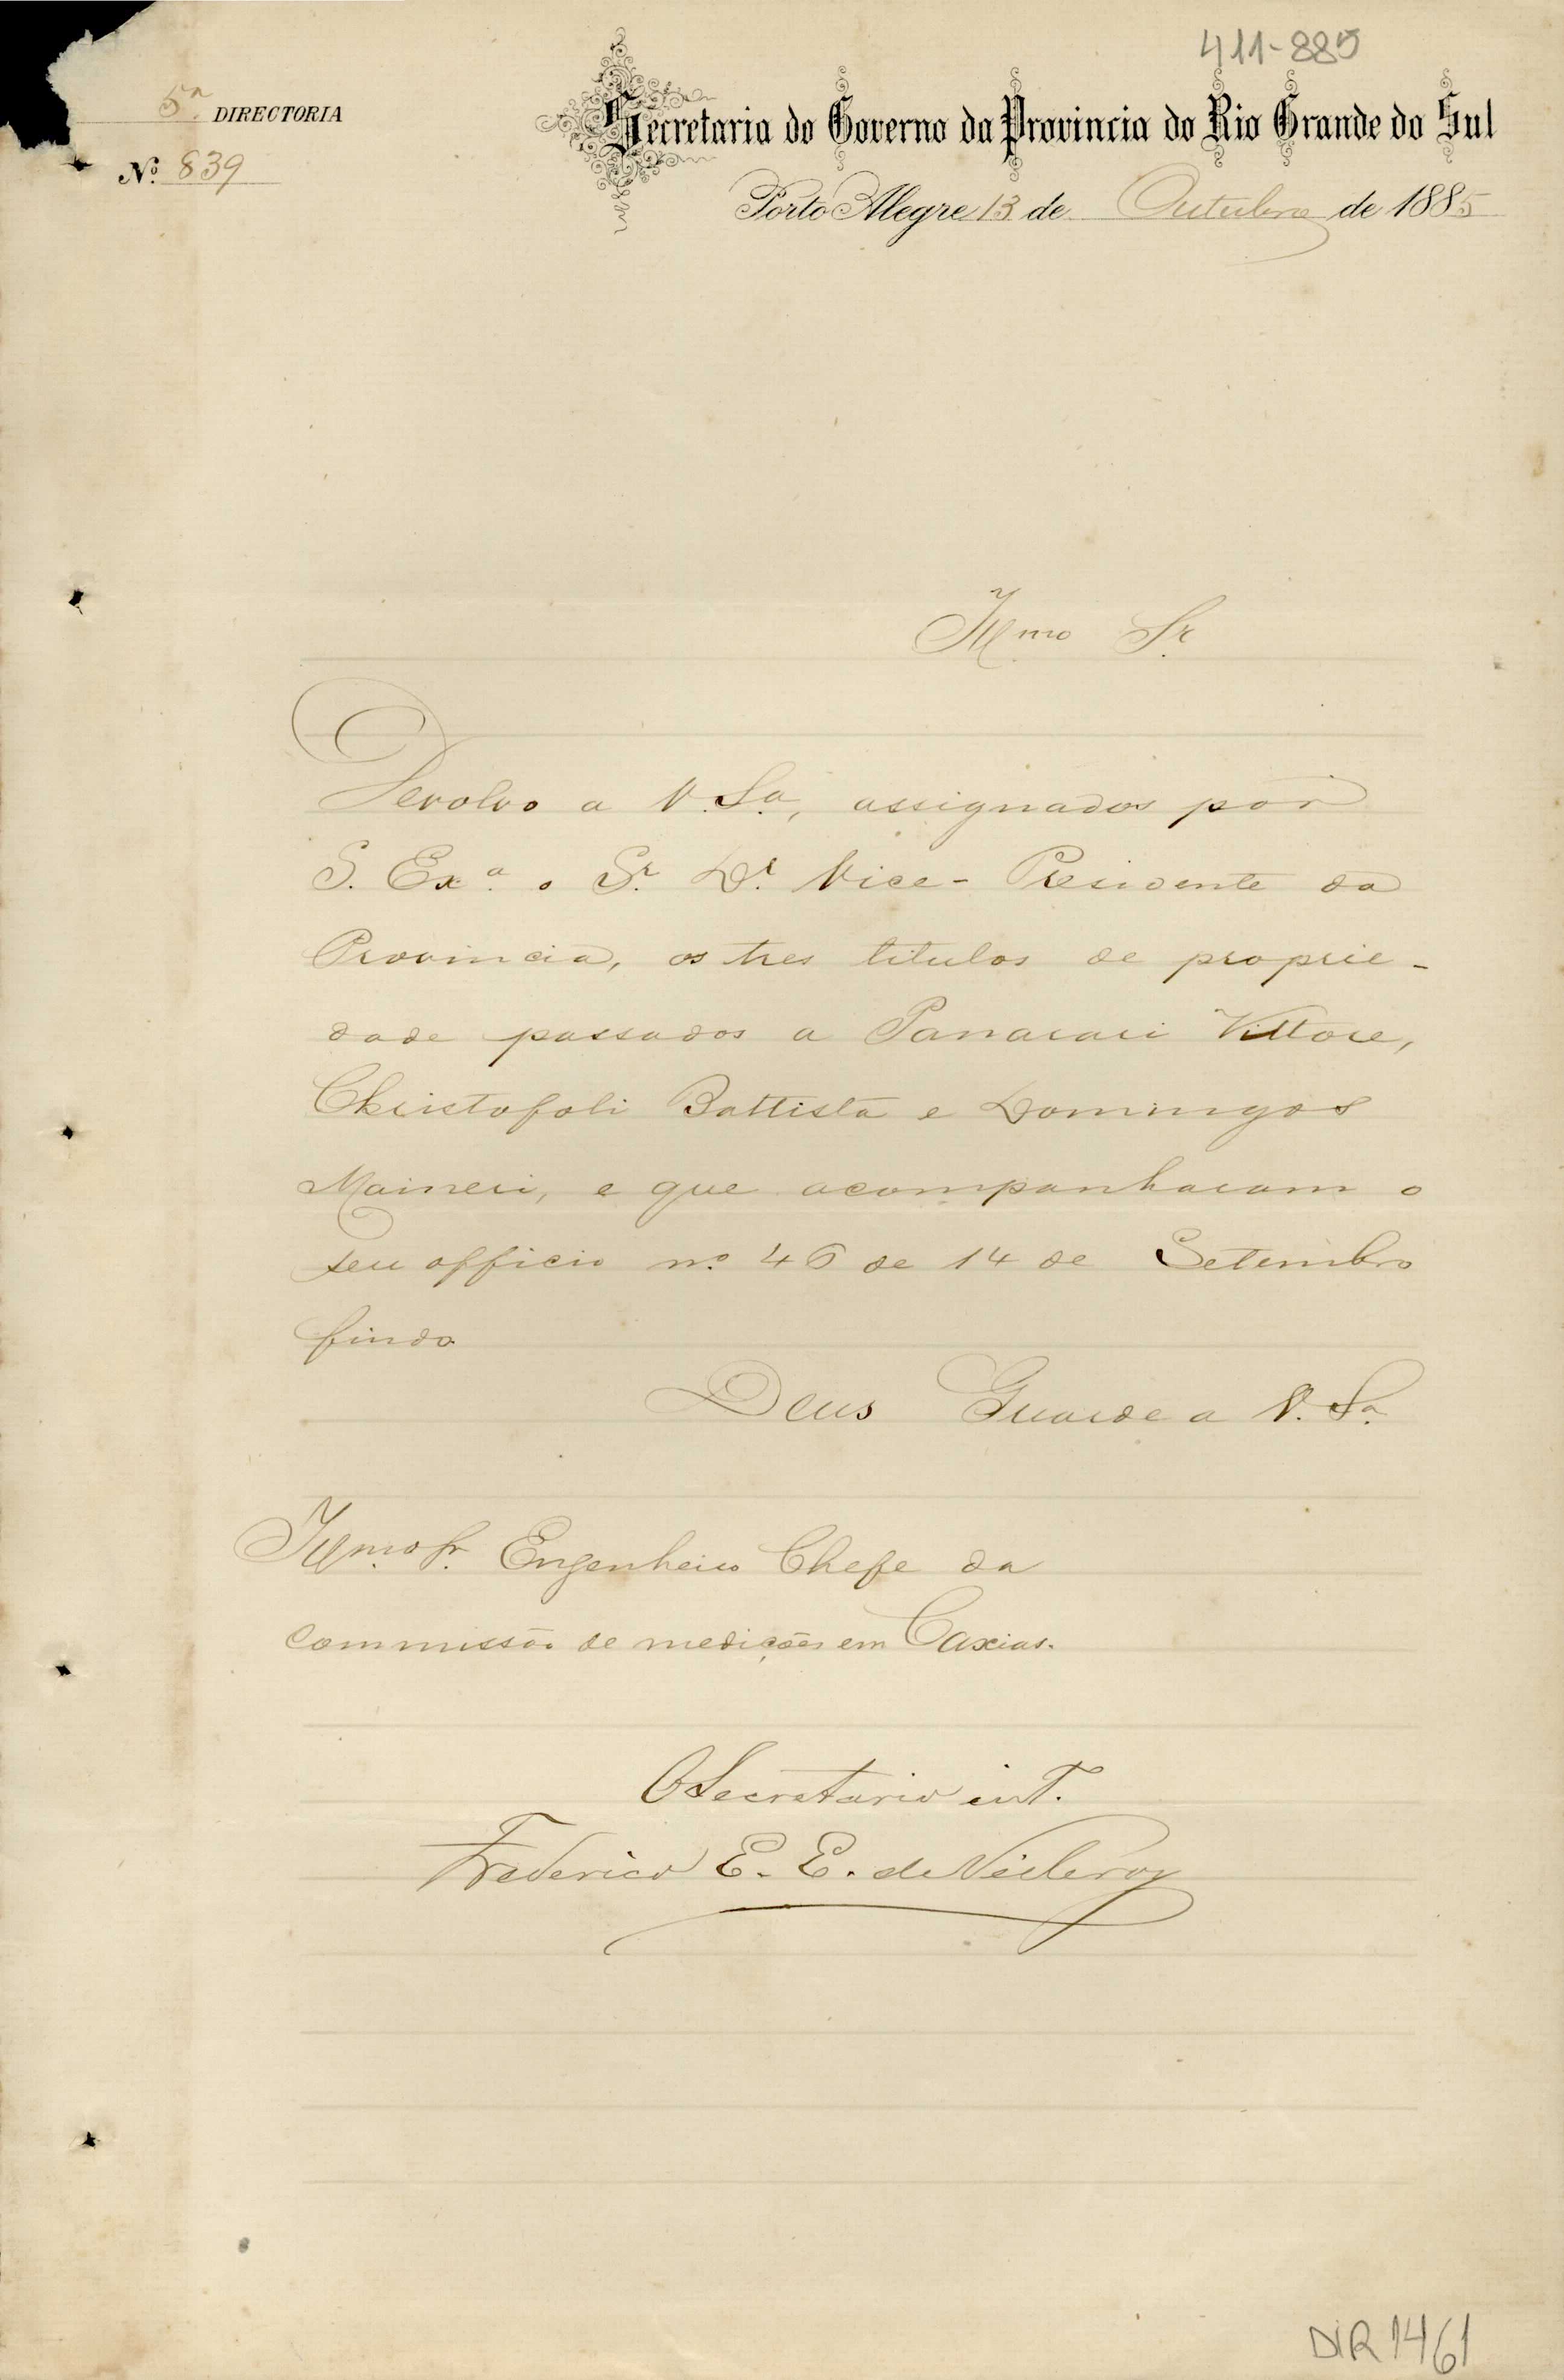 411-885
5ª DIRECTORIA
Secretaria do Governo da Provincia do Rio Grande do Sul
Nº 839
Porto Alegre 13 de Outubro de 1885
Illmo Sr.
Devolvo a V. Sa., assignados por
S. Exª. o Sr. Dr. Vice-Presidente da
Provincia, os tres titulos de proprie-
dade passados a Panarari Vittore,
Christofoli Battista e Domingos
Maineri, e que acompanharam o
seu officio nº 46 de 14 de Setembro
findo
Deus Guarde a V. Sª.
Illmo Sr. Engenheiro Chefe da
Commissão de medições em Caxias.
O Secretario int.
Frederico E. E. de Villeroy
DIR 1461